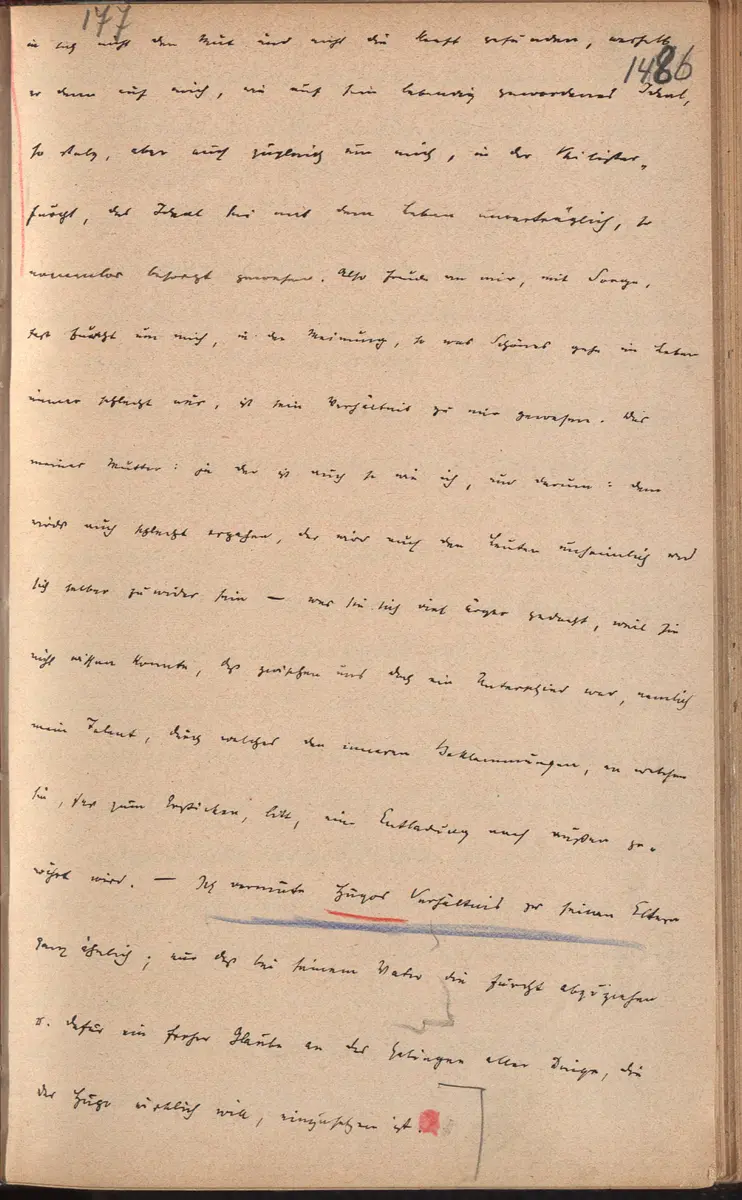 177
1486
in sich nicht den Mut und nicht die Kraft gefunden, weshalb
er denn auf mich, wie auf sein lebendig gewordenes Ideal,
so stolz, aber auch zugleich um mich, in der Philister-
furcht, das Ideal sei mit dem Leben unverträglich, so
namenlos besorgt gewesen. Also Freude an mir, mit Sorge,
fast Furcht um mich, in der Meinung, so was Schönes gehe im Leben
immer schlecht aus, ist sein Verhältnis zu mir gewesen. Das
meiner Mutter: ja der ist auch so wie ich, und darum: dem
wirds auch schlecht ergehen, der wird auch den Leuten unheimlich und
sich selber zuwider sein — was sie sich viel ärger gedacht, weil sie
nicht wissen konnte, daß zwischen uns doch ein Unterschied war, nemlich
mein Talent, durch welches den inneren Beklemmungen, an welchen
sie, fast zum Ersticken, litt, eine Entladung nach außen ge-
währt wird. — Ich vermute Hugos Verhältnis zu seinen Eltern
ganz ähnlich; nur daß bei seinem Vater die Furcht abzuziehen
u. dafür ein froher Glaube an das Gelingen aller Dinge, die
der Hugo wirklich will, einzusetzen ist.